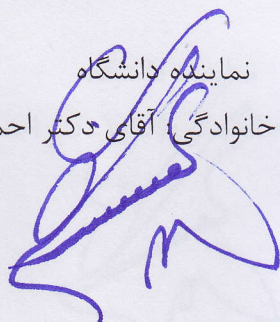 نماینده دانشگاه
خانوادگی: آقای دکتر